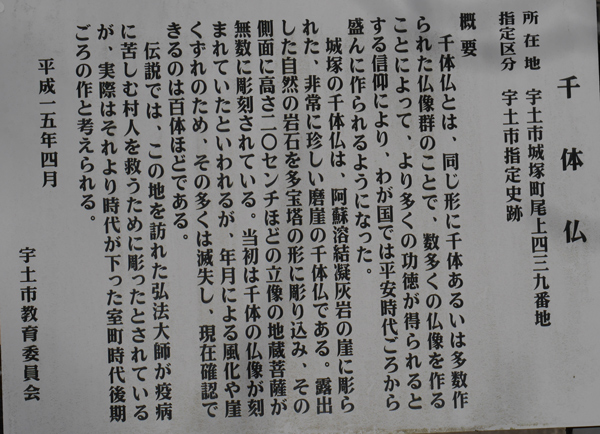 千体仏
所在地　宇土市城塚町尾上四三九番地
指定区分　宇土市指定史跡
概要
　千体仏とは、同じ形に千体あるいは多数作
られた仏像群のことで、数多くの仏像を作る
ことによって、より多くの功徳が得られると
する信仰により、わが国では平安時代ごろから
盛んに作られるようになった。
　城塚の千体仏は、阿蘇溶結凝灰岩の崖に彫ら
れた、非常に珍しい磨崖の千体仏である。露出
した自然の岩石を多宝塔の形に彫り込み、その
側面に高さ二〇センチほどの立像の地蔵菩薩が
無数に彫刻されている。当初は千体の仏像が刻
まれていたといわれるが、年月による風化や崖
くずれのため、その多くは滅失し、現在確認で
きるのは百体ほどである。
　伝説では、この地を訪れた弘法大師が疫病
に苦しむ村人を救うために彫ったとされている
が、実際はそれより時代が下った室町時代後期
ごろの作と考えられる。
平成一五年四月
宇土市教育委員会